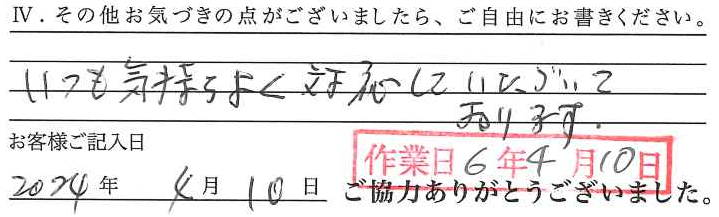 Ⅳ．その他お気づきの点がございましたら、ご自由にお書きください。
いつも気持ちよく対応していただいて
おります。
お客様ご記入日
作業日 6年4月10日
2024年 4月10日 ご協力ありがとうございました。